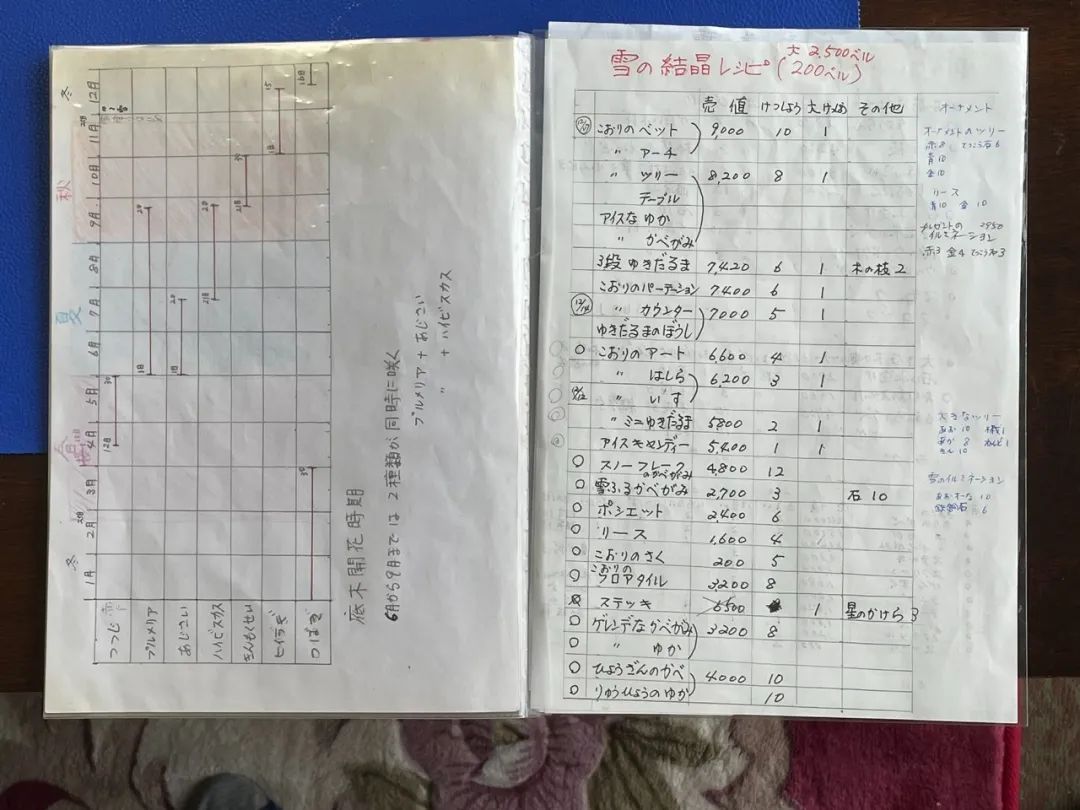 雪の結晶レシピ(大2,500ベル
200ベル)
売値 けっしょう 大けっしょう その他
こおりのベット 9,000 10 1
〃 アーチ
〃 ツリー 8,200 8 1
テーブル
アイスなゆか
〃 かべがみ
3段ゆきだるま 7,420 6 1 木の枝2
こおりのパーテーション 7400 6 1
〃 カウンター 7000 5 1
ゆきだるまのぼうし
○ こおりのアート 6,600 4 1
〃 はしら 6,200 3 1
〃 いす
〃 ミニゆきだるま 5800 2 1
アイスキャンディー 5,400 1 1
○ スノーフレークのかべがみ 4,800 12
○ 雪ふるかべがみ 2,700 3 石10
○ ポシェット 2,400 6
○ リース 1,600 4
○ こおりのさく 200 5
○ こおりのフロアタイル 3,200 8
ステッキ 5500 1 星のかけら 3
○ ゲレンデなかべがみ 3200 8
○ 〃 ゆか
○ ひょうざんのかべ 4,000 10
○ りゅうひょうのゆか 10
オーナメント
オーナメントのツリー
赤8 てっこう石6
青10
金10
リース
青10 金10
イルミネーション
大きなツリー
あお10
あか8
きん10
雪のイルミネーション
10
鉄鉱石 6
冬 春 夏 秋 冬
1月 2月 3月 4月 5月 6月 7月 8月 9月 10月 11月 12月
つつじ 12日 30
プルメリア 1日 20
あじさい 1日 20
ハイビスカス 21日 20
きんもくせい 21日
ヒイラギ 15
つばき 30 16日
底木開花時期
6月から9月までは2種類が同時に咲く
プルメリア+あじさい
〃 +ハイビスカス